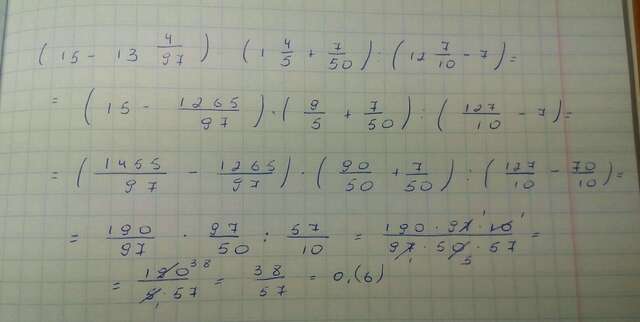 (15 - 13 4/97) (1 4/5 + 7/50) : (12 7/10 - 7) =
= (15 - 1265/97) · (9/5 + 7/50) : (127/10 - 7) =
= (1455/97 - 1265/97) · (90/50 + 7/50) : (127/10 - 70/10) =
= 190/97 · 97/50 : 57/10 = 190 · 97 1 · 10 1/97 1 · 50 5 · 57 =
= 190 38/5 1 · 57 = 38/57 = 0,(6)